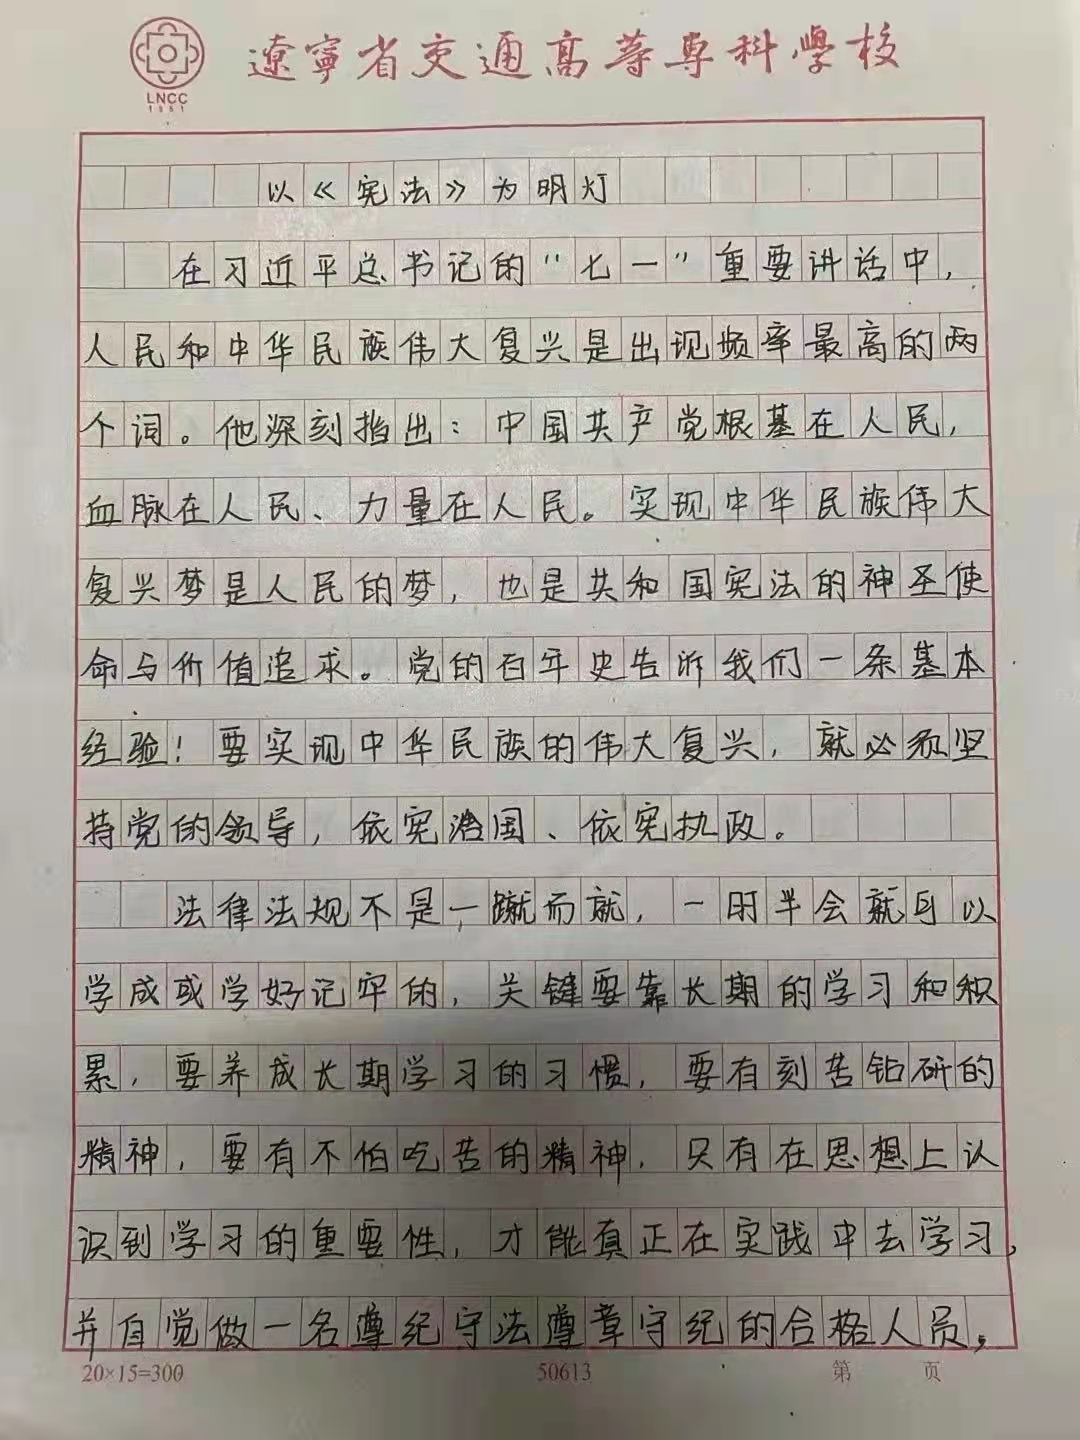 LNCC
1951
辽宁省交通高等专科学校
以《宪法》为明灯
在习近平总书记的“七一”重要讲话中，
人民和中华民族伟大复兴是出现频率最高的两
个词。他深刻指出：中国共产党根基在人民，
血脉在人民、力量在人民。实现中华民族伟大
复兴梦是人民的梦，也是共和国宪法的神圣使
命与价值追求。党的百年史告诉我们一条基本
经验！要实现中华民族的伟大复兴，就必须坚
持党的领导，依宪治国、依宪执政。
法律法规不是一蹴而就，一时半会就可以
学成或学好记牢的，关键要靠长期的学习和积
累，要养成长期学习的习惯，要有刻苦钻研的
精神，要有不怕吃苦的精神．只有在思想上认
识到学习的重要性，才能真正在实践中去学习，
并自觉做一名遵纪守法遵章守纪的合格人员，
20×15=300 50613 第 页